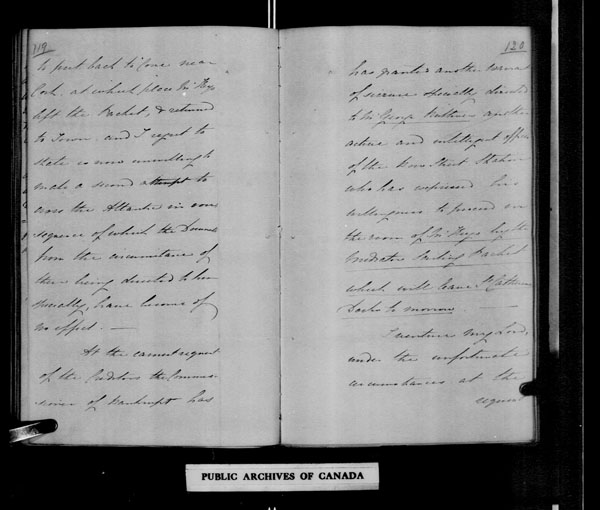 119
to put back to Cove near
Cork at which place Mr Keys
left the Packet, & returned
to Town. and I regret to
state is now unwilling to
make a second attempt to
cross the Atlantic in con
sequence of which the
from the circumstance of
their being directed to him
specially, have become of
no effect. —
At the earnest request
of the Creditors the Commis-
sioner of Bankrupt has
120
has granted another Warrant
of seizure specially directed
to Mr George another
active and intelligent officer
of the Bow Street Station
who has expressed his
willingness to proceed in
the room of Mr Keys by the
Packet
which will leave St Catherines
Docks to morrow. —
I venture my Lord,
under the unfortunate
circumstances at the
request
PUBLIC ARCHIVES OF CANADA